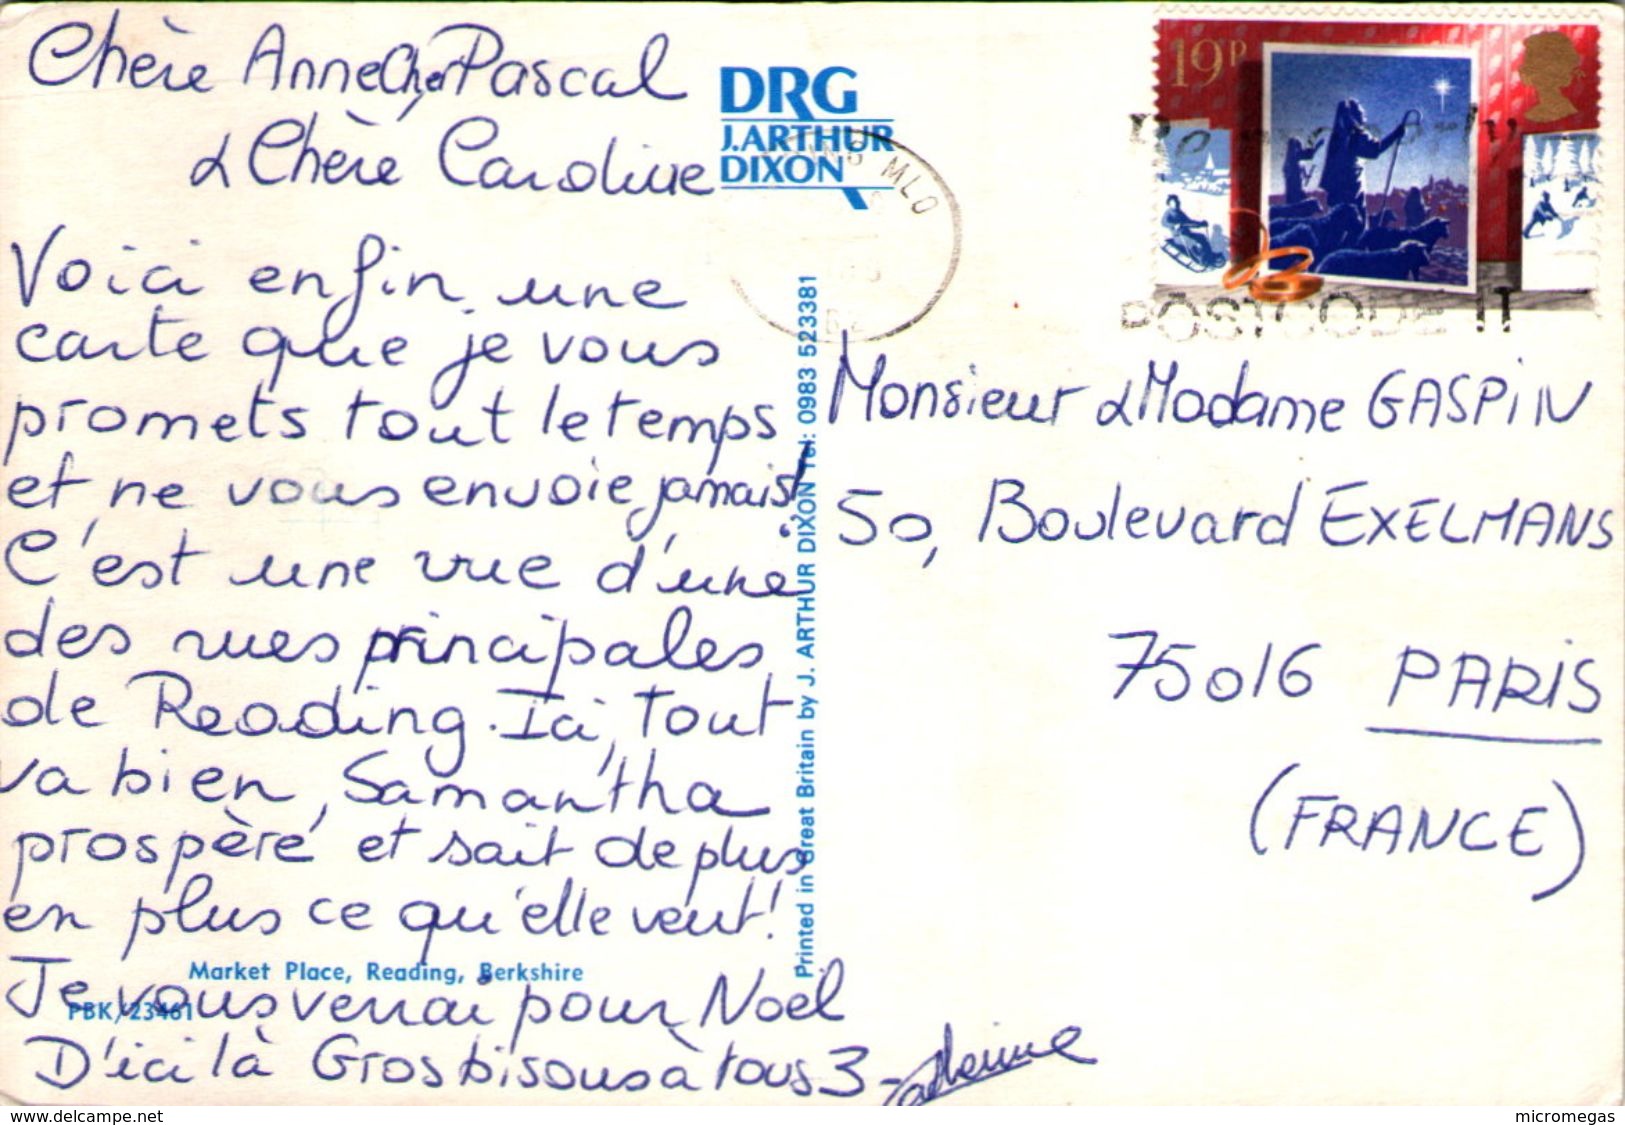 Chère Anne Cher Pascal
& Chère Caroline
Voici enfin une
carte que je vous
promets tout le temps
et ne vous envoie jamais!
C'est une vue d'une
des rues principales
de Reading. Ici, tout
va bien, Samantha
prospère et sait de plus
en plus ce qu'elle veut!
Je vous verrai pour Noël
D'ici là Gros bisous à tous 3 -
DRG
J.ARTHUR
DIXON
Market Place, Reading, Berkshire
PBK/23461
Printed in Great Britain by J. ARTHUR DIXON Tel: 0983 523381
19P
MLO
POSTCODE IT
Monsieur & Madame GASPIN
50, Boulevard EXELMANS
75016 PARIS
(FRANCE)
www.delcampe.net
micromegas